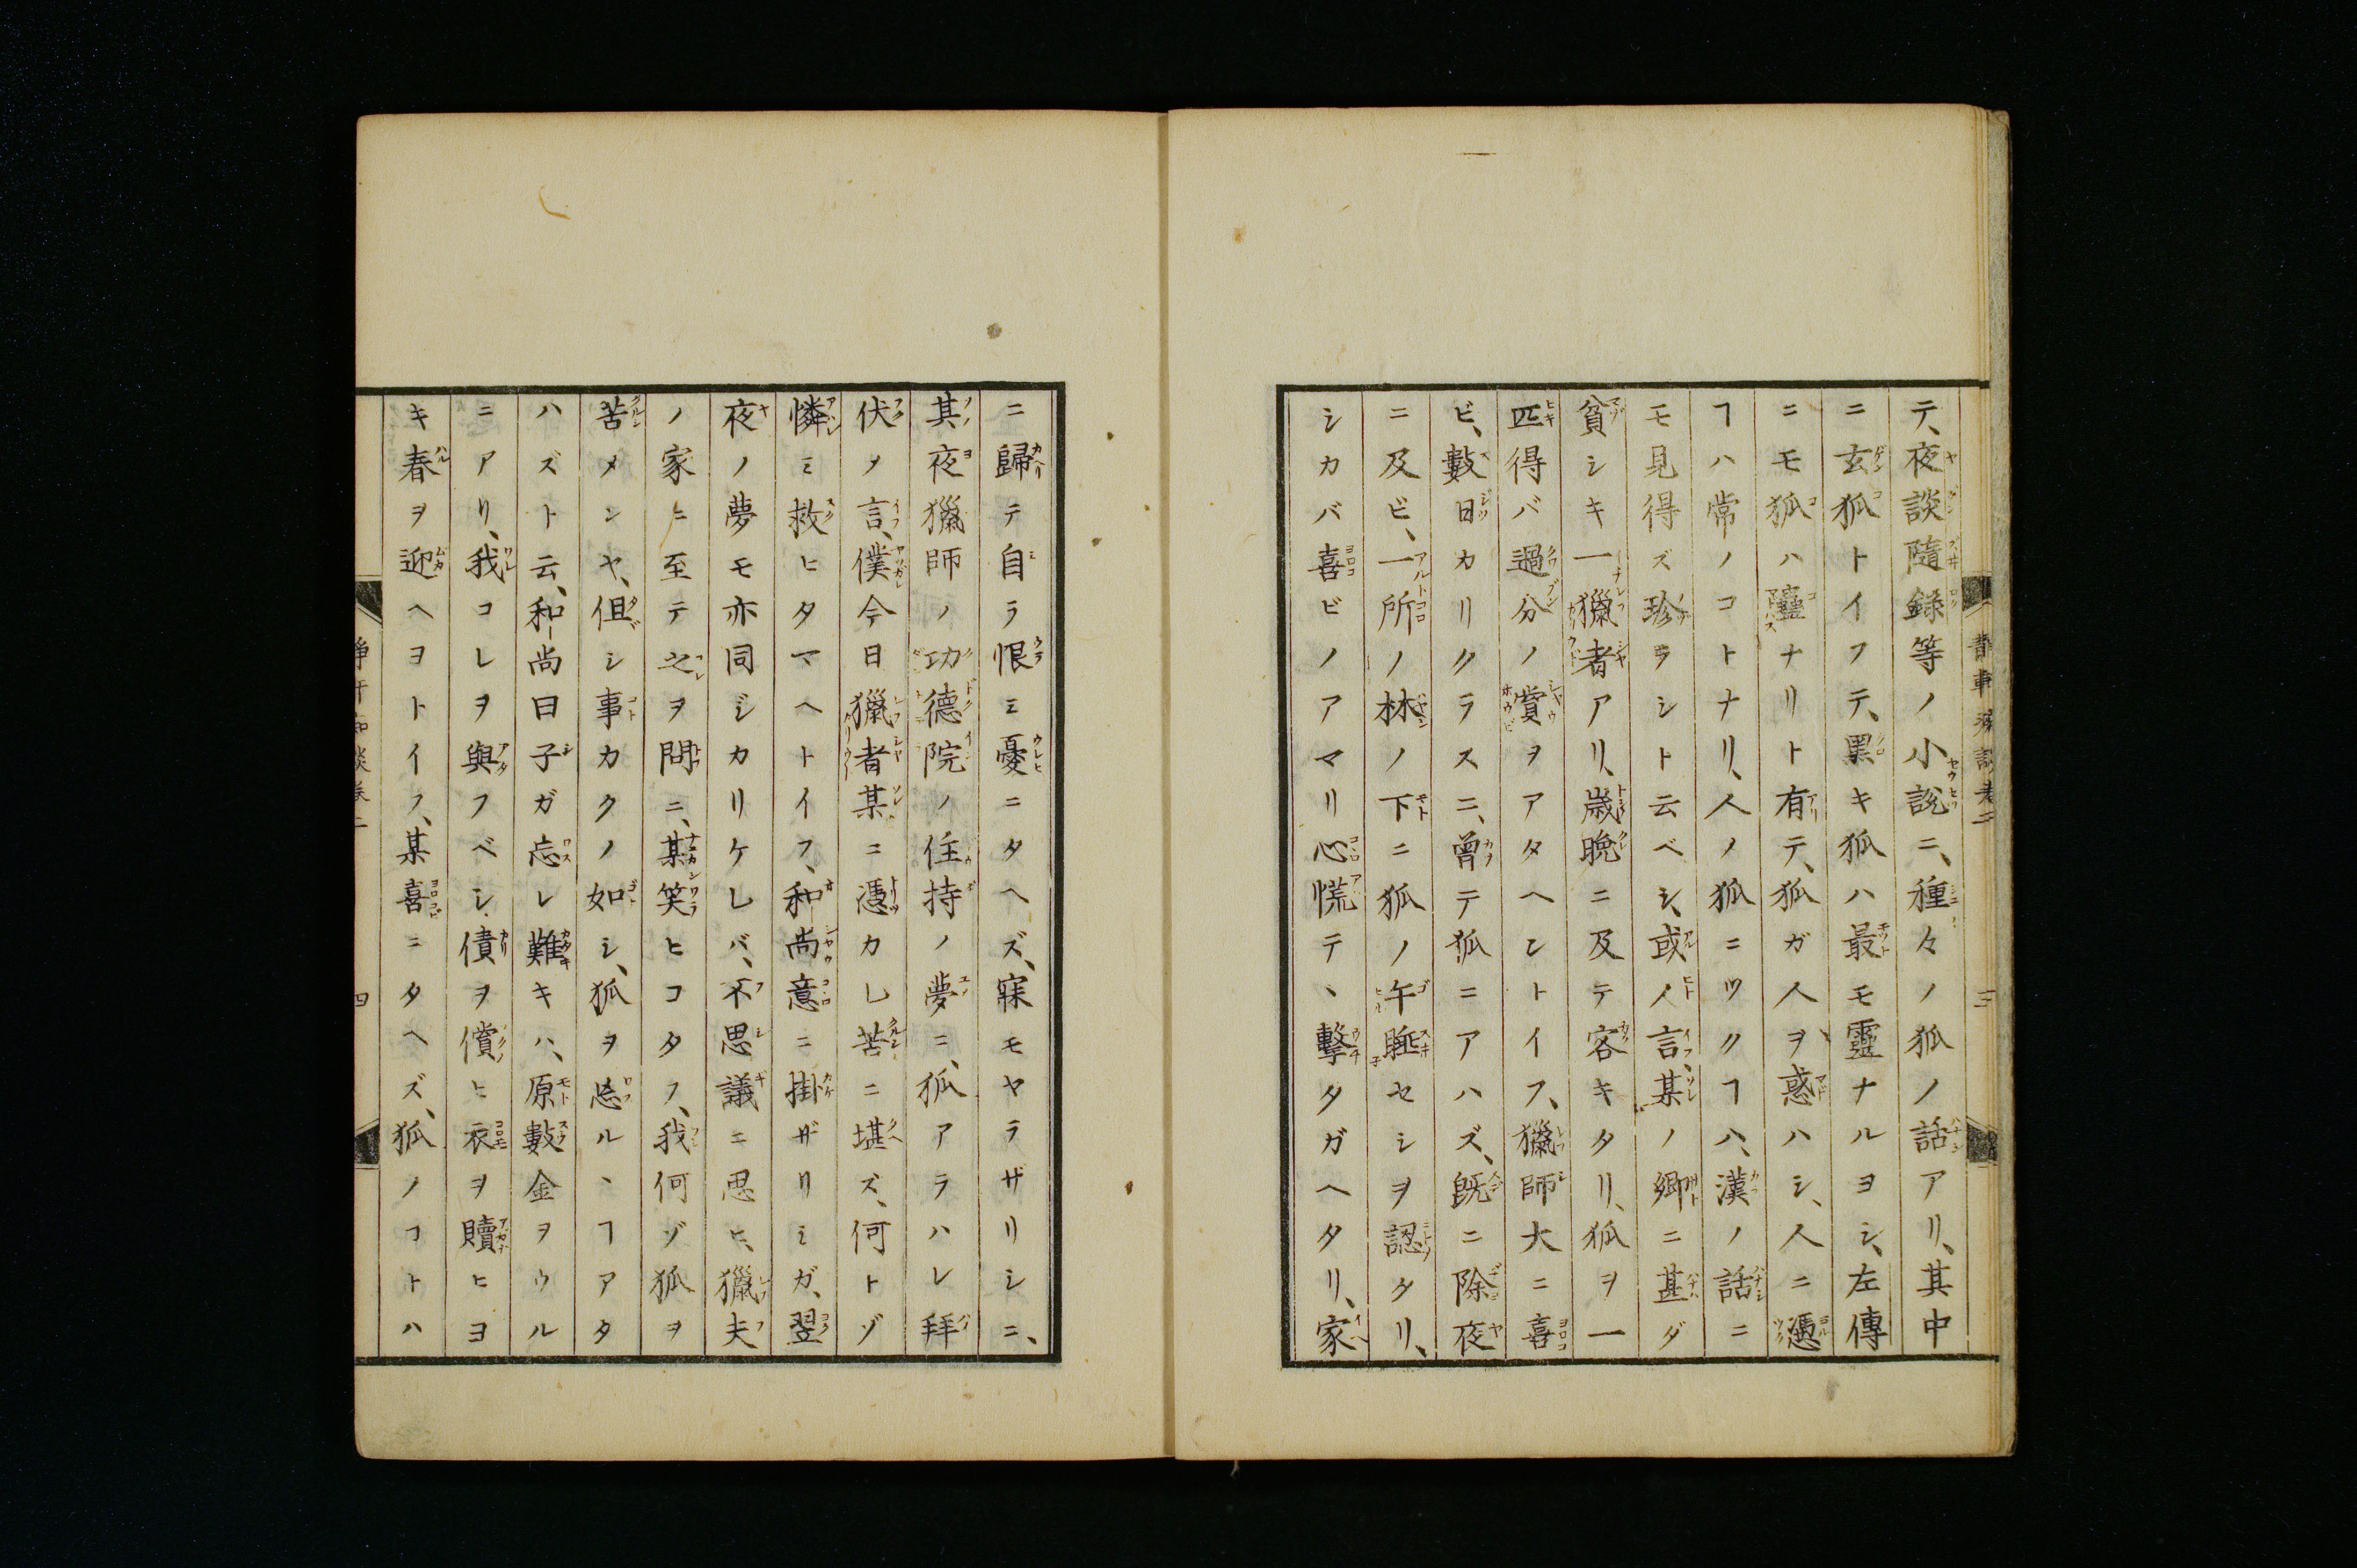 テ、夜談隨錄等ノ小說ニ、種々ノ狐ノ話アリ、其中
ニ玄狐トイフテ、黑キ狐ハ最モ靈ナルヨシ、左傳
ニモ狐ハ蠱ナリト有テ、狐ガ人ヲ惑ハシ、人ニ憑
ヿハ常ノコトナリ、人ノ狐ニツクヿハ、漢ノ話ニ
モ見得ズ珍ラシト云ベシ、或人言、某ノ鄉ニ甚ダ
貧シキ一獵者アリ、歲晩ニ及テ客キタリ、狐ヲ一
匹得バ過分ノ賞ヲアタヘントイフ、獵師大ニ喜
ビ、數日カリクラスニ、曾テ狐ニアハズ、既ニ除夜
ニ及ビ、一所ノ林ノ下ニ狐ノ午睡セシヲ認タリ、
シカバ喜ビノアマリ心慌テヽ擊タガヘタリ、家
ニ歸テ自ラ恨ミ憂ニタヘズ、寐モヤラザリシニ、
其夜獵師ノ功德院ノ住持ノ夢ニ、狐アラハレ拜
伏メ言、僕今日獵者某ニ憑カレ苦ニ堪ズ、何トゾ
憐ミ救ヒタマヘトイフ、和尚意ニ掛ザリシガ、翌
夜ノ夢モ亦同ジカリケレバ、不思議ニ思ヒ、獵夫
ノ家ニ至テ之ヲ問ニ、某笑ヒコタフ、我何ゾ狐ヲ
苦メンヤ、但シ事カクノ如シ、狐ヲ忘ルヽヿアタ
ハズト云、和尚曰子ガ忘レ難キハ、原數金ヲウル
ニアリ、我コレヲ與フベシ、債ヲ償ヒ衣ヲ贖ヒヨ
キ春ヲ迎ヘヨトイフ、某喜ニタヘズ、狐ノコトハ
四